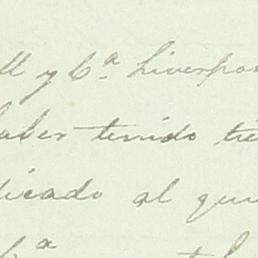 ll y C.ª Liverpoo
haber tenido tie
dicado al que
C.ª